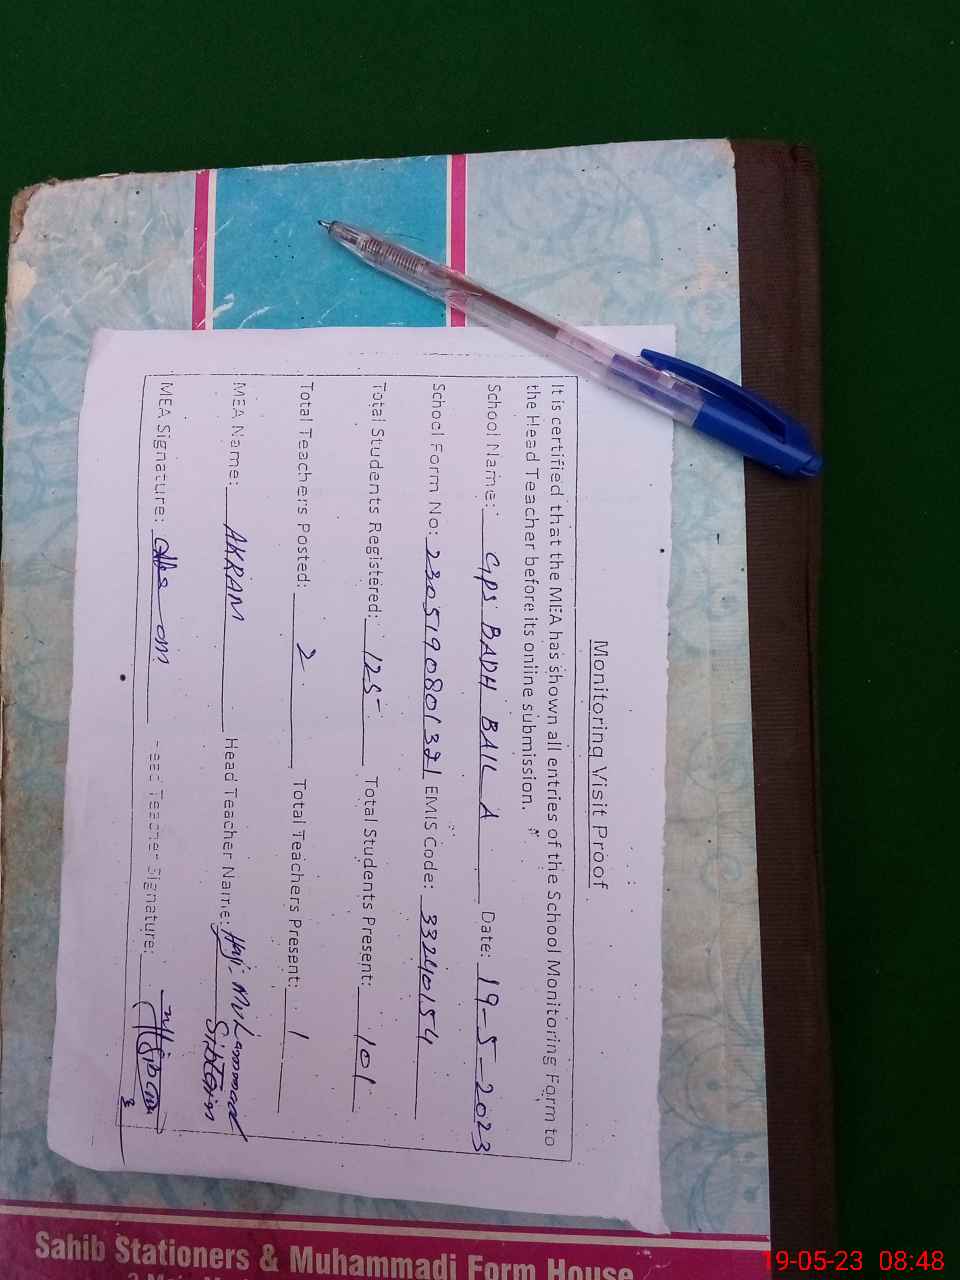 Monitoring Visit Proof
It is certified that the MEA has shown all entries of the School Monitoring Form to
the Head Teacher before its online submission.
School Name: GPS BADH BAIL A Date: 19-5-2023
School Form No: EMIS Code: 33240154
Total Students Registered: 125 Total Students Present: 101
Total Teachers Posted: 2 Total Teachers Present: 1
MEA Name: AKRAM Head Teacher Name: Haji Muhammad
SibTain
MEA Signature: Head Teacher Signature:
Sahib Stationers & Muhammadi Form House
19-05-23 08:48